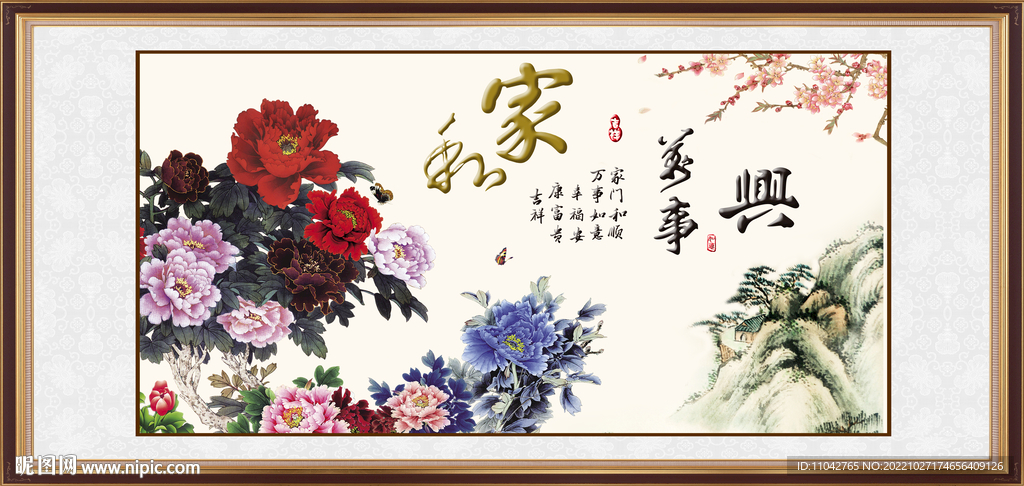 家
和
萬事
興
吉祥
家门和顺
万事如意
幸福安
康富贵
吉祥
昵图网 www.nipic.com
ID:11042765 NO:20221027174656409126